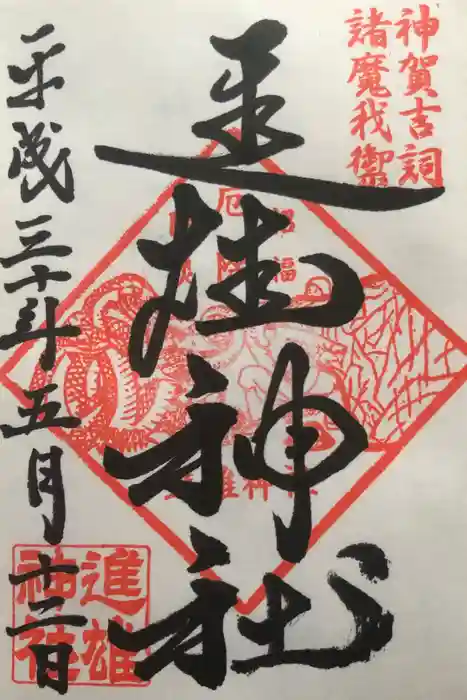 神賀吉詞
諸魔我禦
進雄神社
平成三十年五月十二日
招福
厄除
進雄神社
進雄
神社